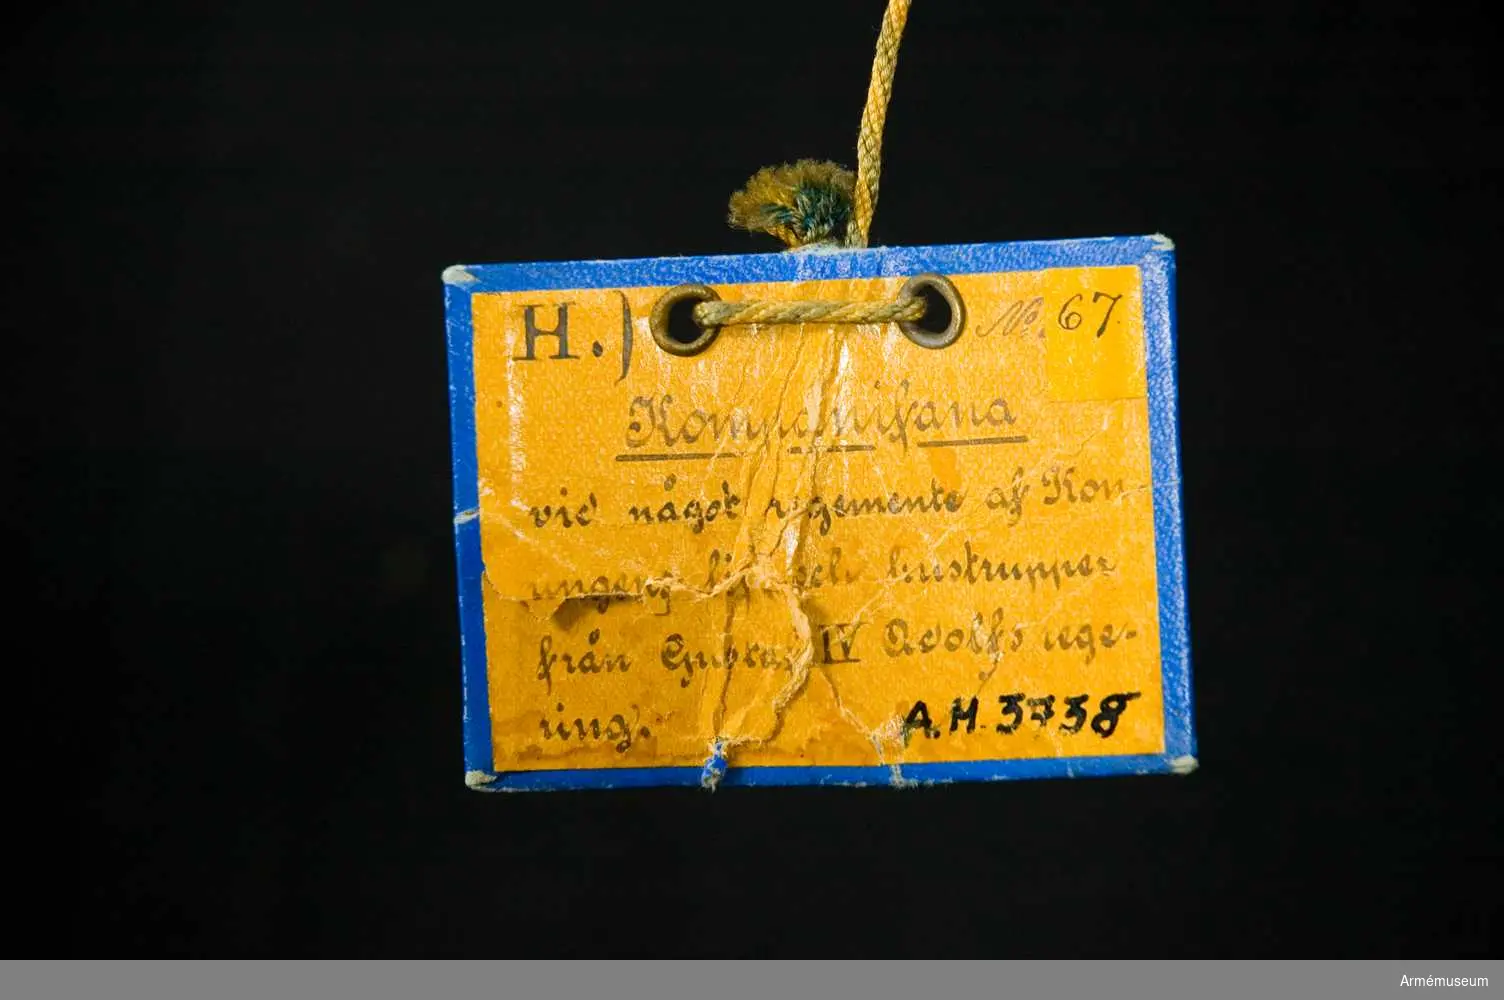 H.) No. 67.
Kompanifana
vid något regemente af Kon-
ungens lif och hustrupper
från Gustaf IV Adolfs rege-
ring.
A.M. 3738
Armémuseum